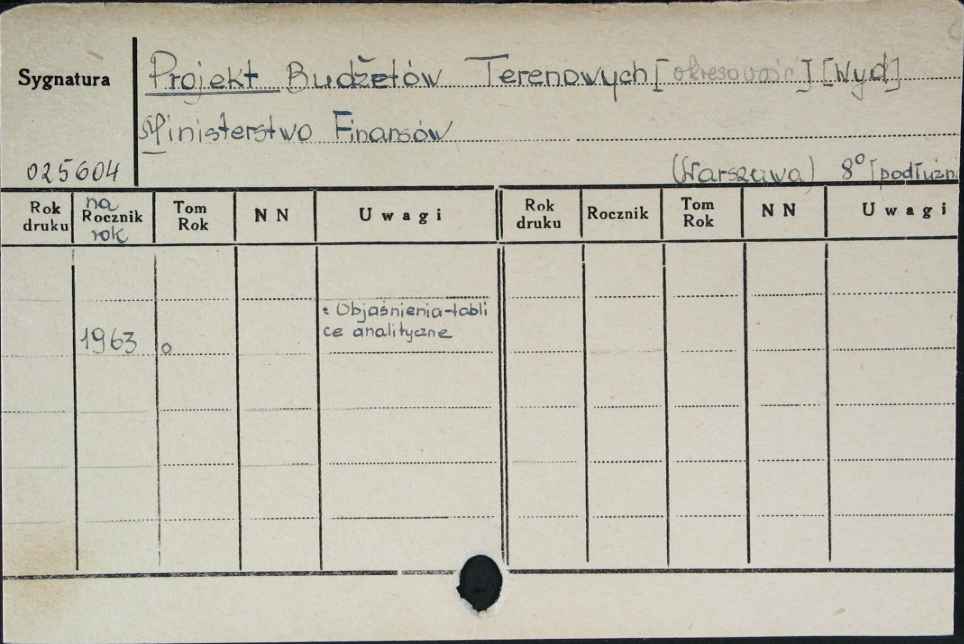 Sygnatura
Projekt Budżetów Terenowych [ ] [Wyd]
Ministerstwo Finansów
025604
(Warszawa) 8° [podłużn
Rok druku na Rocznik rok Tom Rok N N Uwagi Rok druku Rocznik Tom Rok N N Uwagi
1963 o : Objaśnienia-tabli
ce analityczne